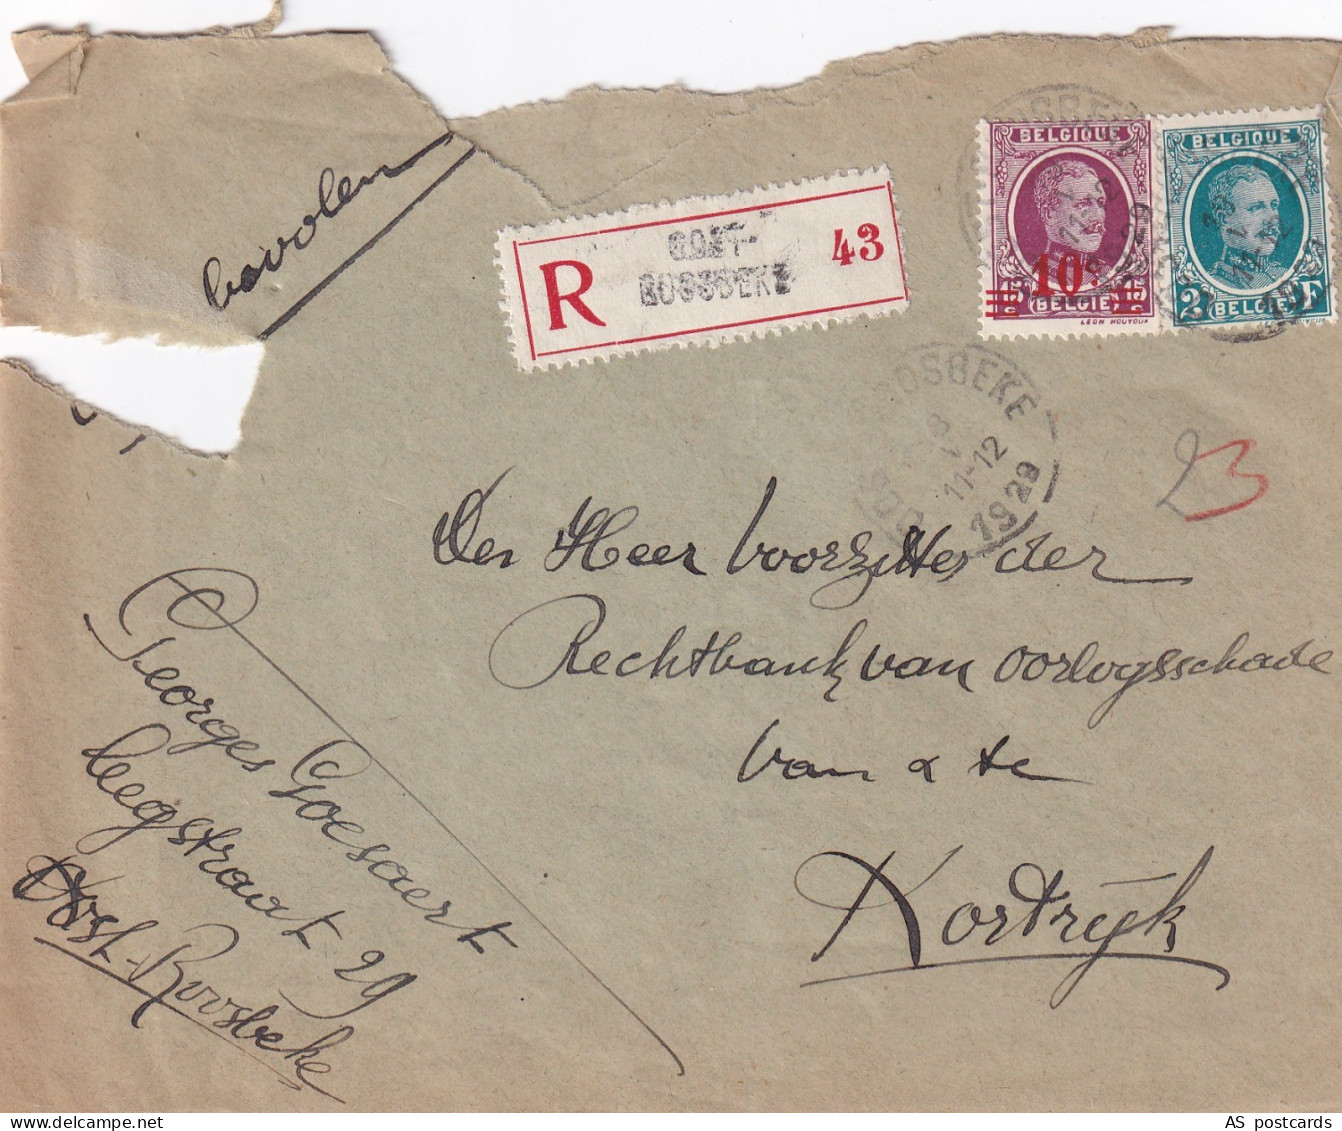 bevolen
R
OOST-
ROOSBEKE
43
BELGIQUE
10c
BELGIE
LEON HOUYOUX
BELGIQUE
2 F
BELGIE
OOSTROOSBEKE
8
11-12
1929
23
Den Heer Voorzitter der
Rechtbank van Oorlogsschade
van & te
Kortrijk
Georges Goesaert
Leegstraat 29
Oost-Roosbeke
AS postcards